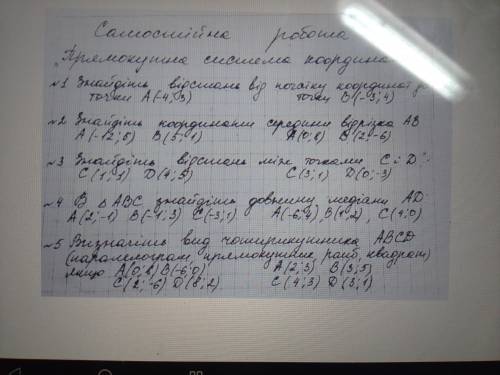 Самостійна робота
"Прямокутна система координа
№1 Знайдіть відстань від початку координат до
точки А(-4; 3) точки В(-3; 4)
№2 Знайдіть координати середини відрізка АВ
А(-12; 5) В(5; 1) А(0; 8) В(2; -6)
№3 Знайдіть відстань між точками С і D:
С(1; 1) D(4; 5) С(3; 1) D(0; -3)
№4 В △ АВС знайдіть довжину медіани AD:
А(2; -1) В(-1; 3) С(-3; 1) А(-6; 4), В(1; 2), С(4; 0)
№5 Визначіть вид чотирикутника ABCD
(паралелограм, прямокутник, ромб, квадрат)
якщо А(0; 8) В(-6; 0) А(2; 3) В(3; 5)
С(2; -6) D(8; 2) С(4; 3) D(3; 1)